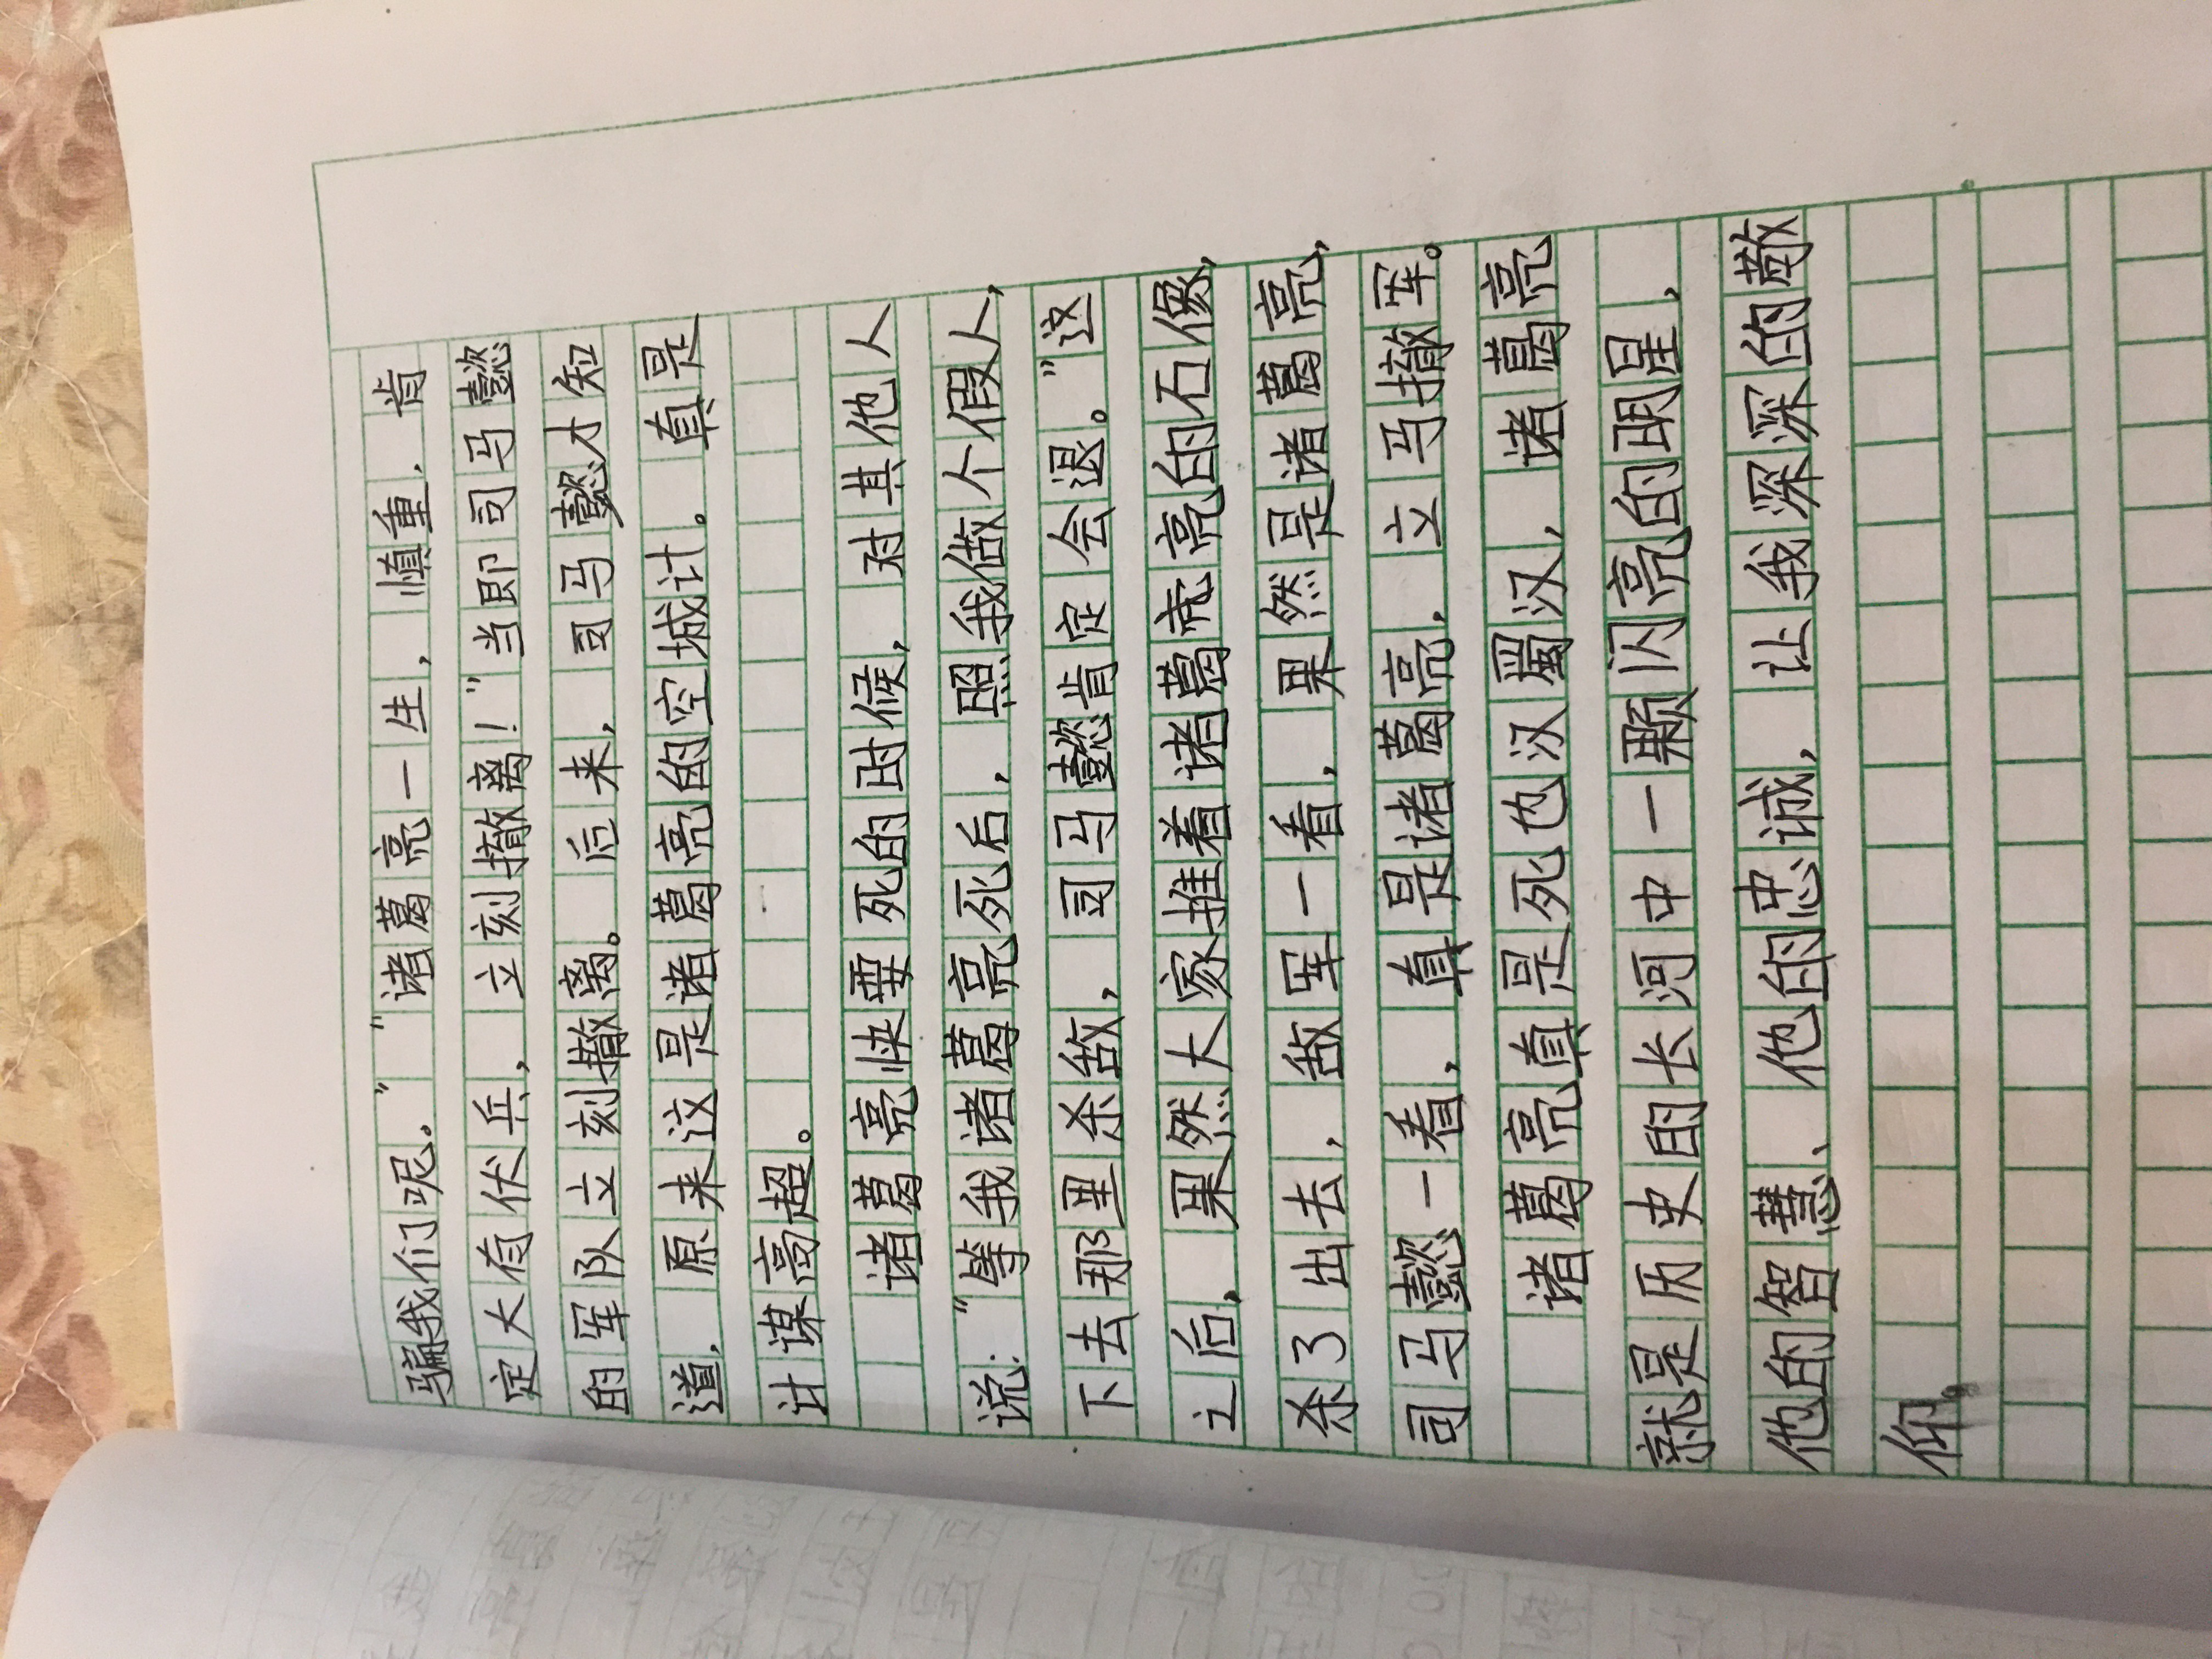 骗我们呢。”“诸葛亮一生，慎重，肯
定大有伏兵，立刻撤离！”当即司马懿
的军队立刻撤离。后来，司马懿才知
道，原来这是诸葛亮的空城计。真是
计谋高超。
诸葛亮快要死的时候，对其他人
说：“等我诸葛亮死后，照我做个假人，
下去那里杀敌，司马懿肯定会退。”这
之后，果然大家推着诸葛亮的石像，
杀了出去，敌军一看，果然是诸葛亮，
司马懿一看，真是诸葛亮，立马撤军。
诸葛亮真是死也汉蜀汉，诸葛亮
就是历史的长河中一颗闪亮的明星，
他的智慧、他的忠诚，让我深深的敬
仰。